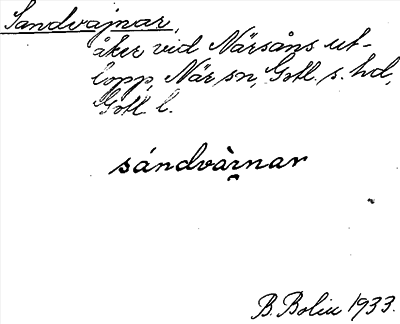 Sandvajnar,
åker vid Närsåns ut-
lopp, När sn, Gotl. s. hd,
Gotl. l.
sándvàrnar
B. Bolin 1933.